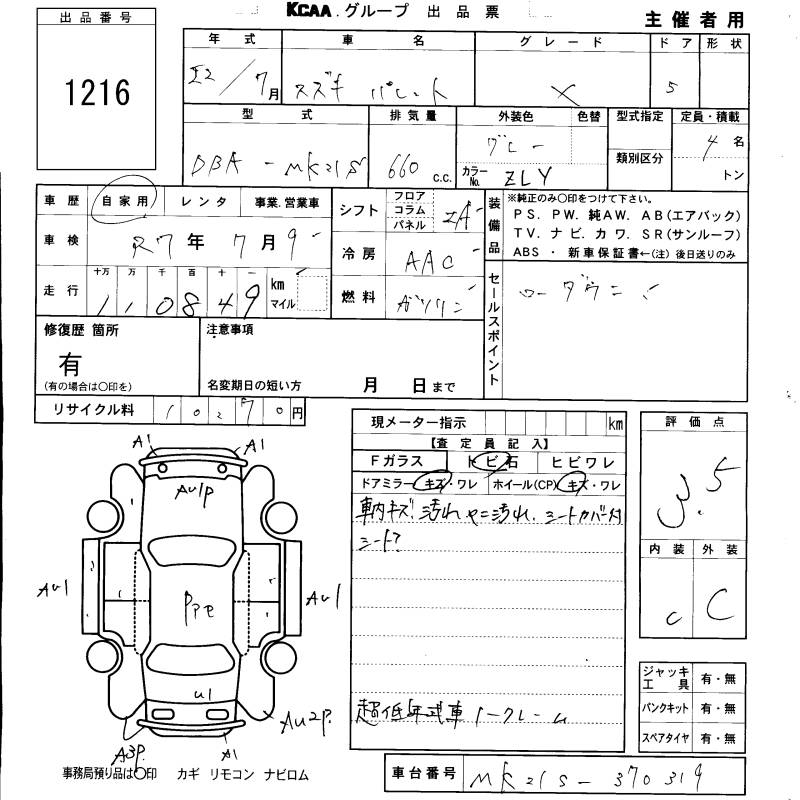 KCAA.グループ 出品票
主催者用
出品番号
1216
年式 車名 グレード ドア 形状
22/7月 スズキ パレット X 5
型式 排気量 外装色 色替 型式指定 定員・積載
DBA-MK21S 660 c.c. グレー カラーNo. ZLY 類別区分 4名
トン
車歴 自家用 レンタ 事業.営業車
車検 R7年7月9
走行 十万 万 千 百 十 一
110849 km マイル
シフト フロア コラム パネル IA
冷房 AAC
燃料 ガソリン
装備品 ※純正のみ〇印をつけて下さい。
PS. PW. 純AW. AB(エアバック)
TV. ナビ. カワ. SR(サンルーフ)
ABS ・ 新車保証書←(注) 後日送りのみ
セールスポイント
ローダウン
修復歴 箇所
有
(有の場合は〇印を)
注意事項
名変期日の短い方 月 日まで
リサイクル料 10270円
現メーター指示 km
【査定員記入】
Fガラス トビ石 ヒビワレ
ドアミラー キズ・ワレ ホイール(CP) キズ・ワレ
車内キズ.汚れ ヤニ汚れ. シートカバー付
シート?
超低年式車 ノークレーム
評価点
3.5
内装 外装
C C
ジャッキ 工具 有・無
パンクキット 有・無
スペアタイヤ 有・無
A1 A1
AU1P
AU1 PPe AU1
U1
AU2P.
A3P. A1
事務局預り品は〇印 カギ リモコン ナビロム
車台番号 MK21S-370319